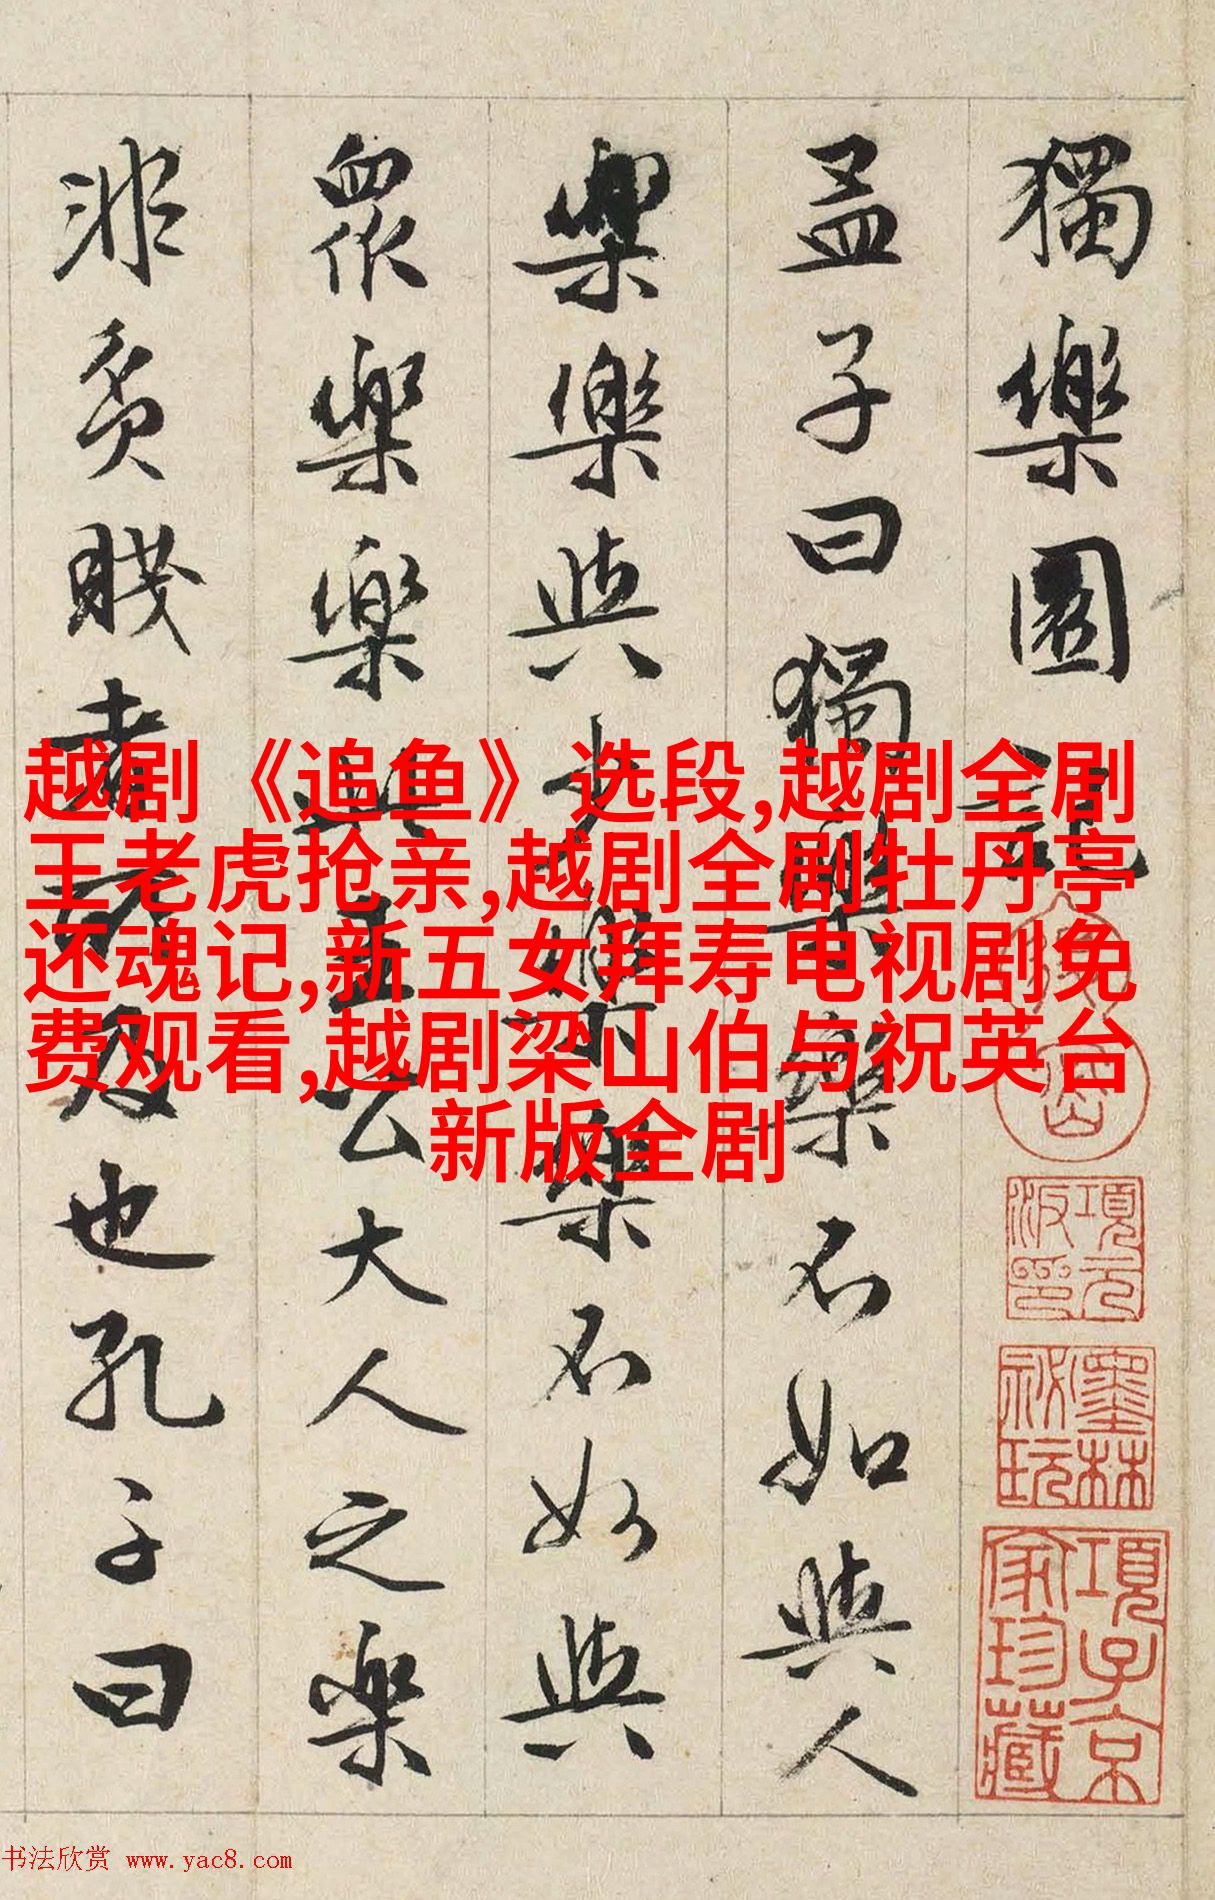 獨樂園記
孟子曰獨樂樂不如與人
樂樂與少樂樂不如與
衆樂樂此王公大人之樂
非貧賤者所及也孔子曰
越剧《追鱼》选段,越剧全剧
王老虎抢亲,越剧全剧牡丹亭
还魂记,新五女拜寿电视剧免
费观看,越剧梁山伯与祝英台
新版全剧
項元汴印
墨林秘玩
項子京家珍藏
书法欣赏 www.yac8.com